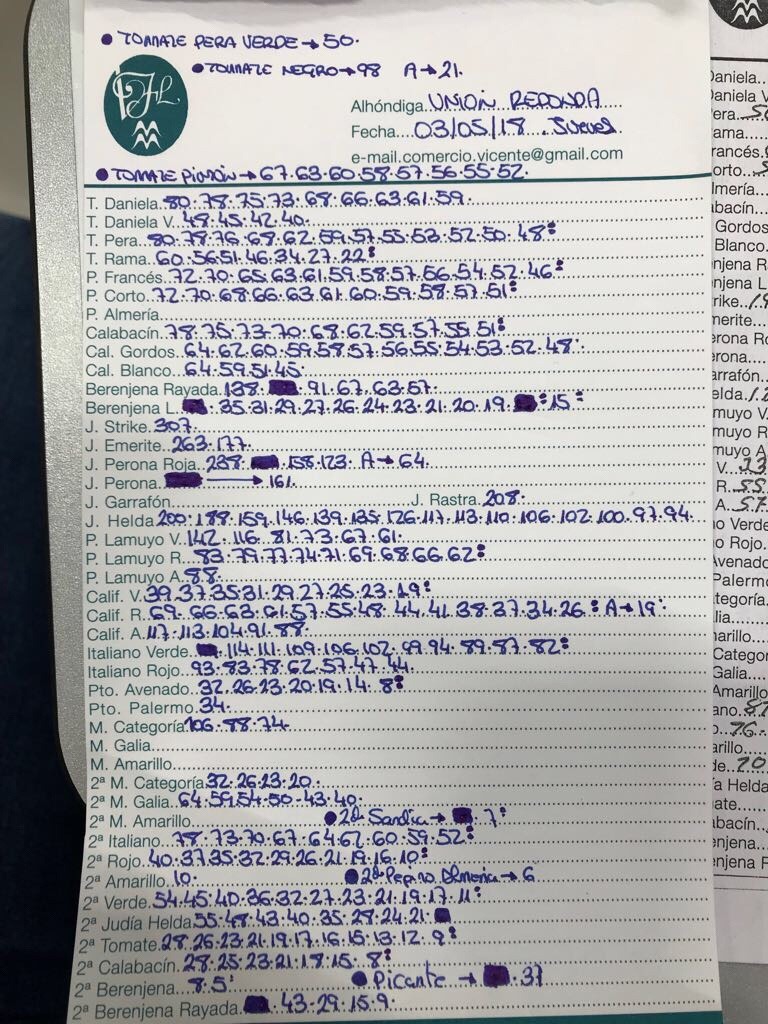 • TOMATE PERA VERDE → 50.
• TOMATE NEGRO → 98 A → 21.
Alhóndiga..UNION REDONDA....
Fecha....03/05/18...Jueves
e-mail.comercio.vicente@gmail.com
• TOMATE PIÑÓN → 67.63.60.58.57.56.55.52.
T. Daniela..80.78.75.73.68.66.63.61.59.
T. Daniela V..48.45.42.40.
T. Pera..80.78.76.68.62.59.57.55.53.52.50.48:
T. Rama..60.56.51.46.34.27.22:
P. Francés..72.70.65.63.61.59.58.57.56.54.52.46:
P. Corto..72.70.68.66.63.61.60.59.58.57.51:
P. Almería
Calabacín..78.75.73.70.68.62.59.57.55.51:
Cal. Gordos..64.62.60.59.58.57.56.55.54.53.52.48:
Cal. Blanco..64.59.51.45.
Berenjena Rayada..138. .91.67.63.57.
Berenjena L... .35.31.29.27.26.24.23.21.20.19. :15:
J. Strike..307.
J. Emerite..263.177.
J. Perona Roja..238. .158.123. A → 64.
J. Perona.. → 161.
J. Garrafón J. Rastra..208.
J. Helda..200.188.159.146.139.135.126.117.113.110.106.102.100.97.94.
P. Lamuyo V..142.116.81.73.67.61.
P. Lamuyo R...83.79.77.74.71.69.68.66.62:
P. Lamuyo A..88.
Calif. V..39.37.35.31.29.27.25.23.19:
Calif. R..69.66.63.61.57.55.48.44.41.38.37.34.26: A → 19:
Calif. A..117.113.104.91.88.
Italiano Verde.. .114.111.109.106.102.99.94.89.87.82:
Italiano Rojo..93.83.78.62.57.47.44.
Pto. Avenado..32.26.23.20.19.14.8:
Pto. Palermo..34.
M. Categoría..106.88.74.
M. Galia
M. Amarillo
2ª M. Categoría..32.26.23.20.
2ª M. Galia...64.59.54.50.43.40.
2ª M. Amarillo • 2ª Sandía → .7:
2ª Italiano..78.73.70.67.64.62.60.59.52:
2ª Rojo..40.37.35.32.29.26.21.19.16.10:
2ª Amarillo..10. • 2ª Pepino Almería → 6
2ª Verde..54.45.40.36.32.27.23.21.19.17.11:
2ª Judía Helda..55.48.43.40.35.28.24.21.
2ª Tomate..28.26.23.21.19.17.16.15.13.12.9:
2ª Calabacín..28.25.23.21.18.15.8:
2ª Berenjena...8.5: • Picante → .37
2ª Berenjena Rayada.. .43.29.15.9.